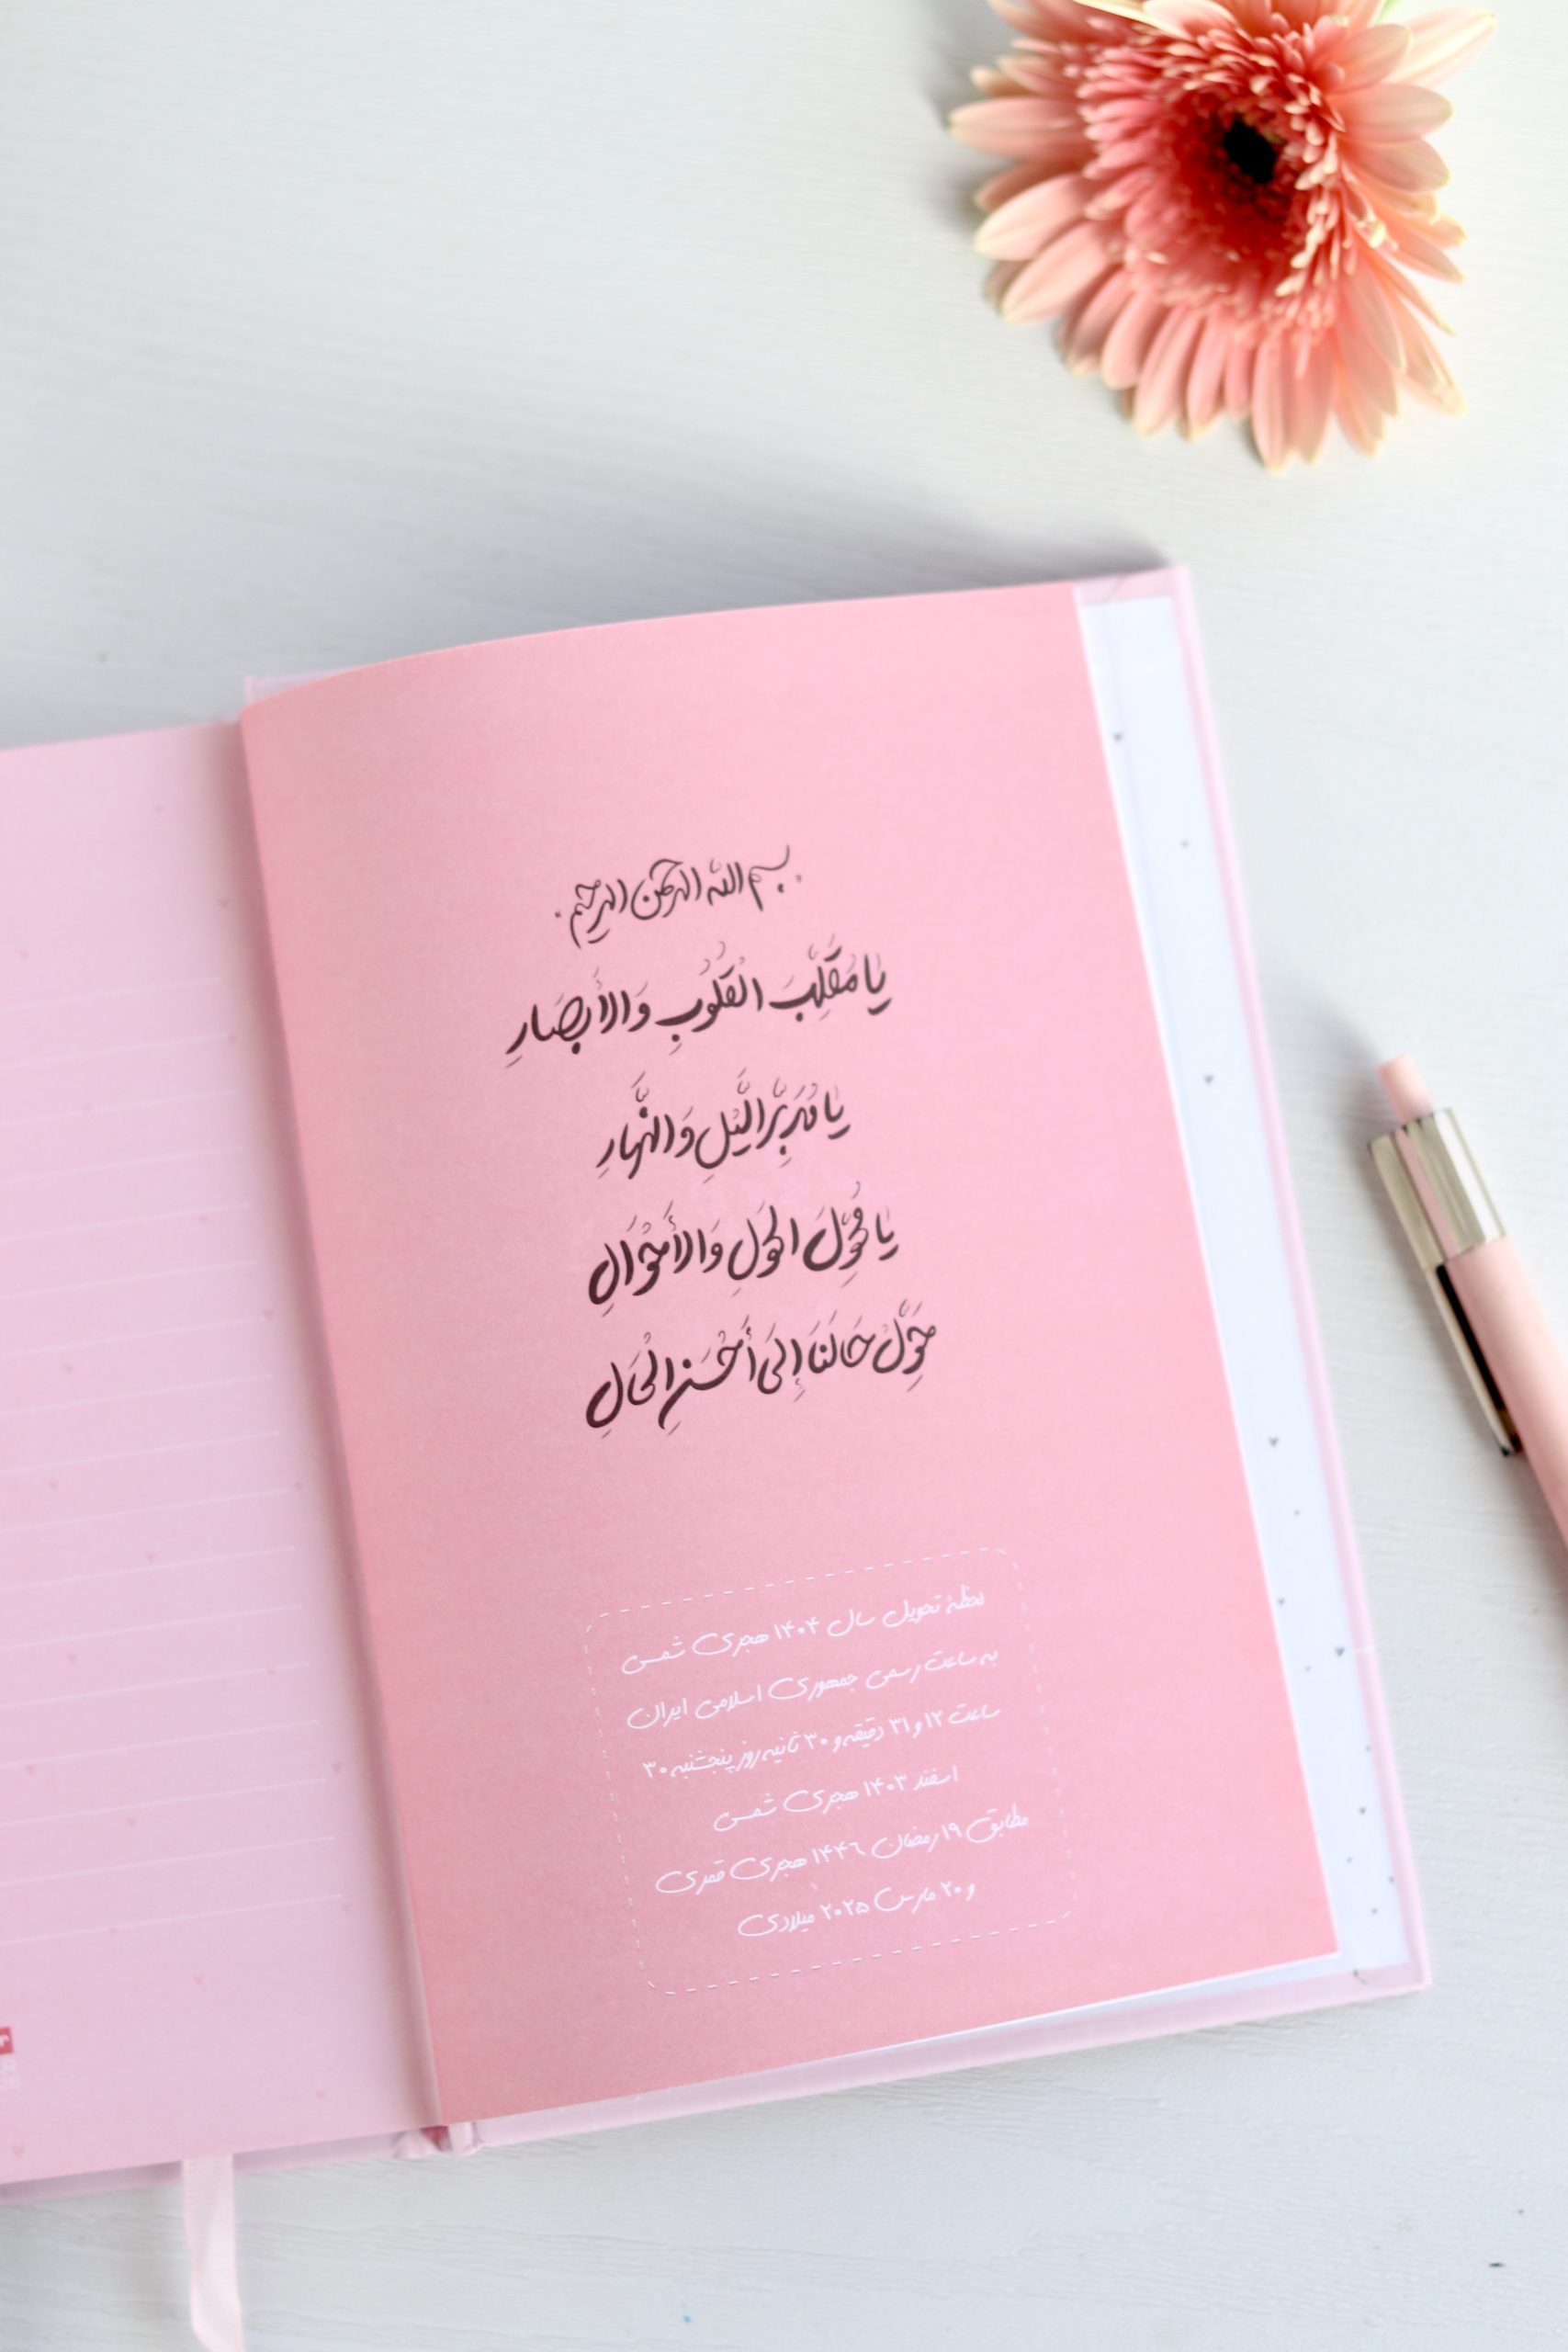 بسم الله الرحمن الرحیم
یا مُقَلِّبَ الْقُلُوبِ وَالأَبصَارِ
یا مُدَبِّرَ اللَّیْلِ وَالنَّهارِ
یا مُحَوِّلَ الحَوْلِ وَالأَحْوَالِ
حَوِّلْ حَالَنَا إِلَى أَحْسَنِ الْحَالِ
لحظهٔ تحویل سال ۱۴۰۴ هجری شمسی
به ساعت رسمی جمهوری اسلامی ایران
ساعت ۱۲ و ۳۱ دقیقه و ۳۰ ثانیه روز پنجشنبه ۳۰
اسفند ۱۴۰۳ هجری شمسی
مطابق ۱۹ رمضان ۱۴۴۶ هجری قمری
و ۲۰ مارس ۲۰۲۵ میلادی